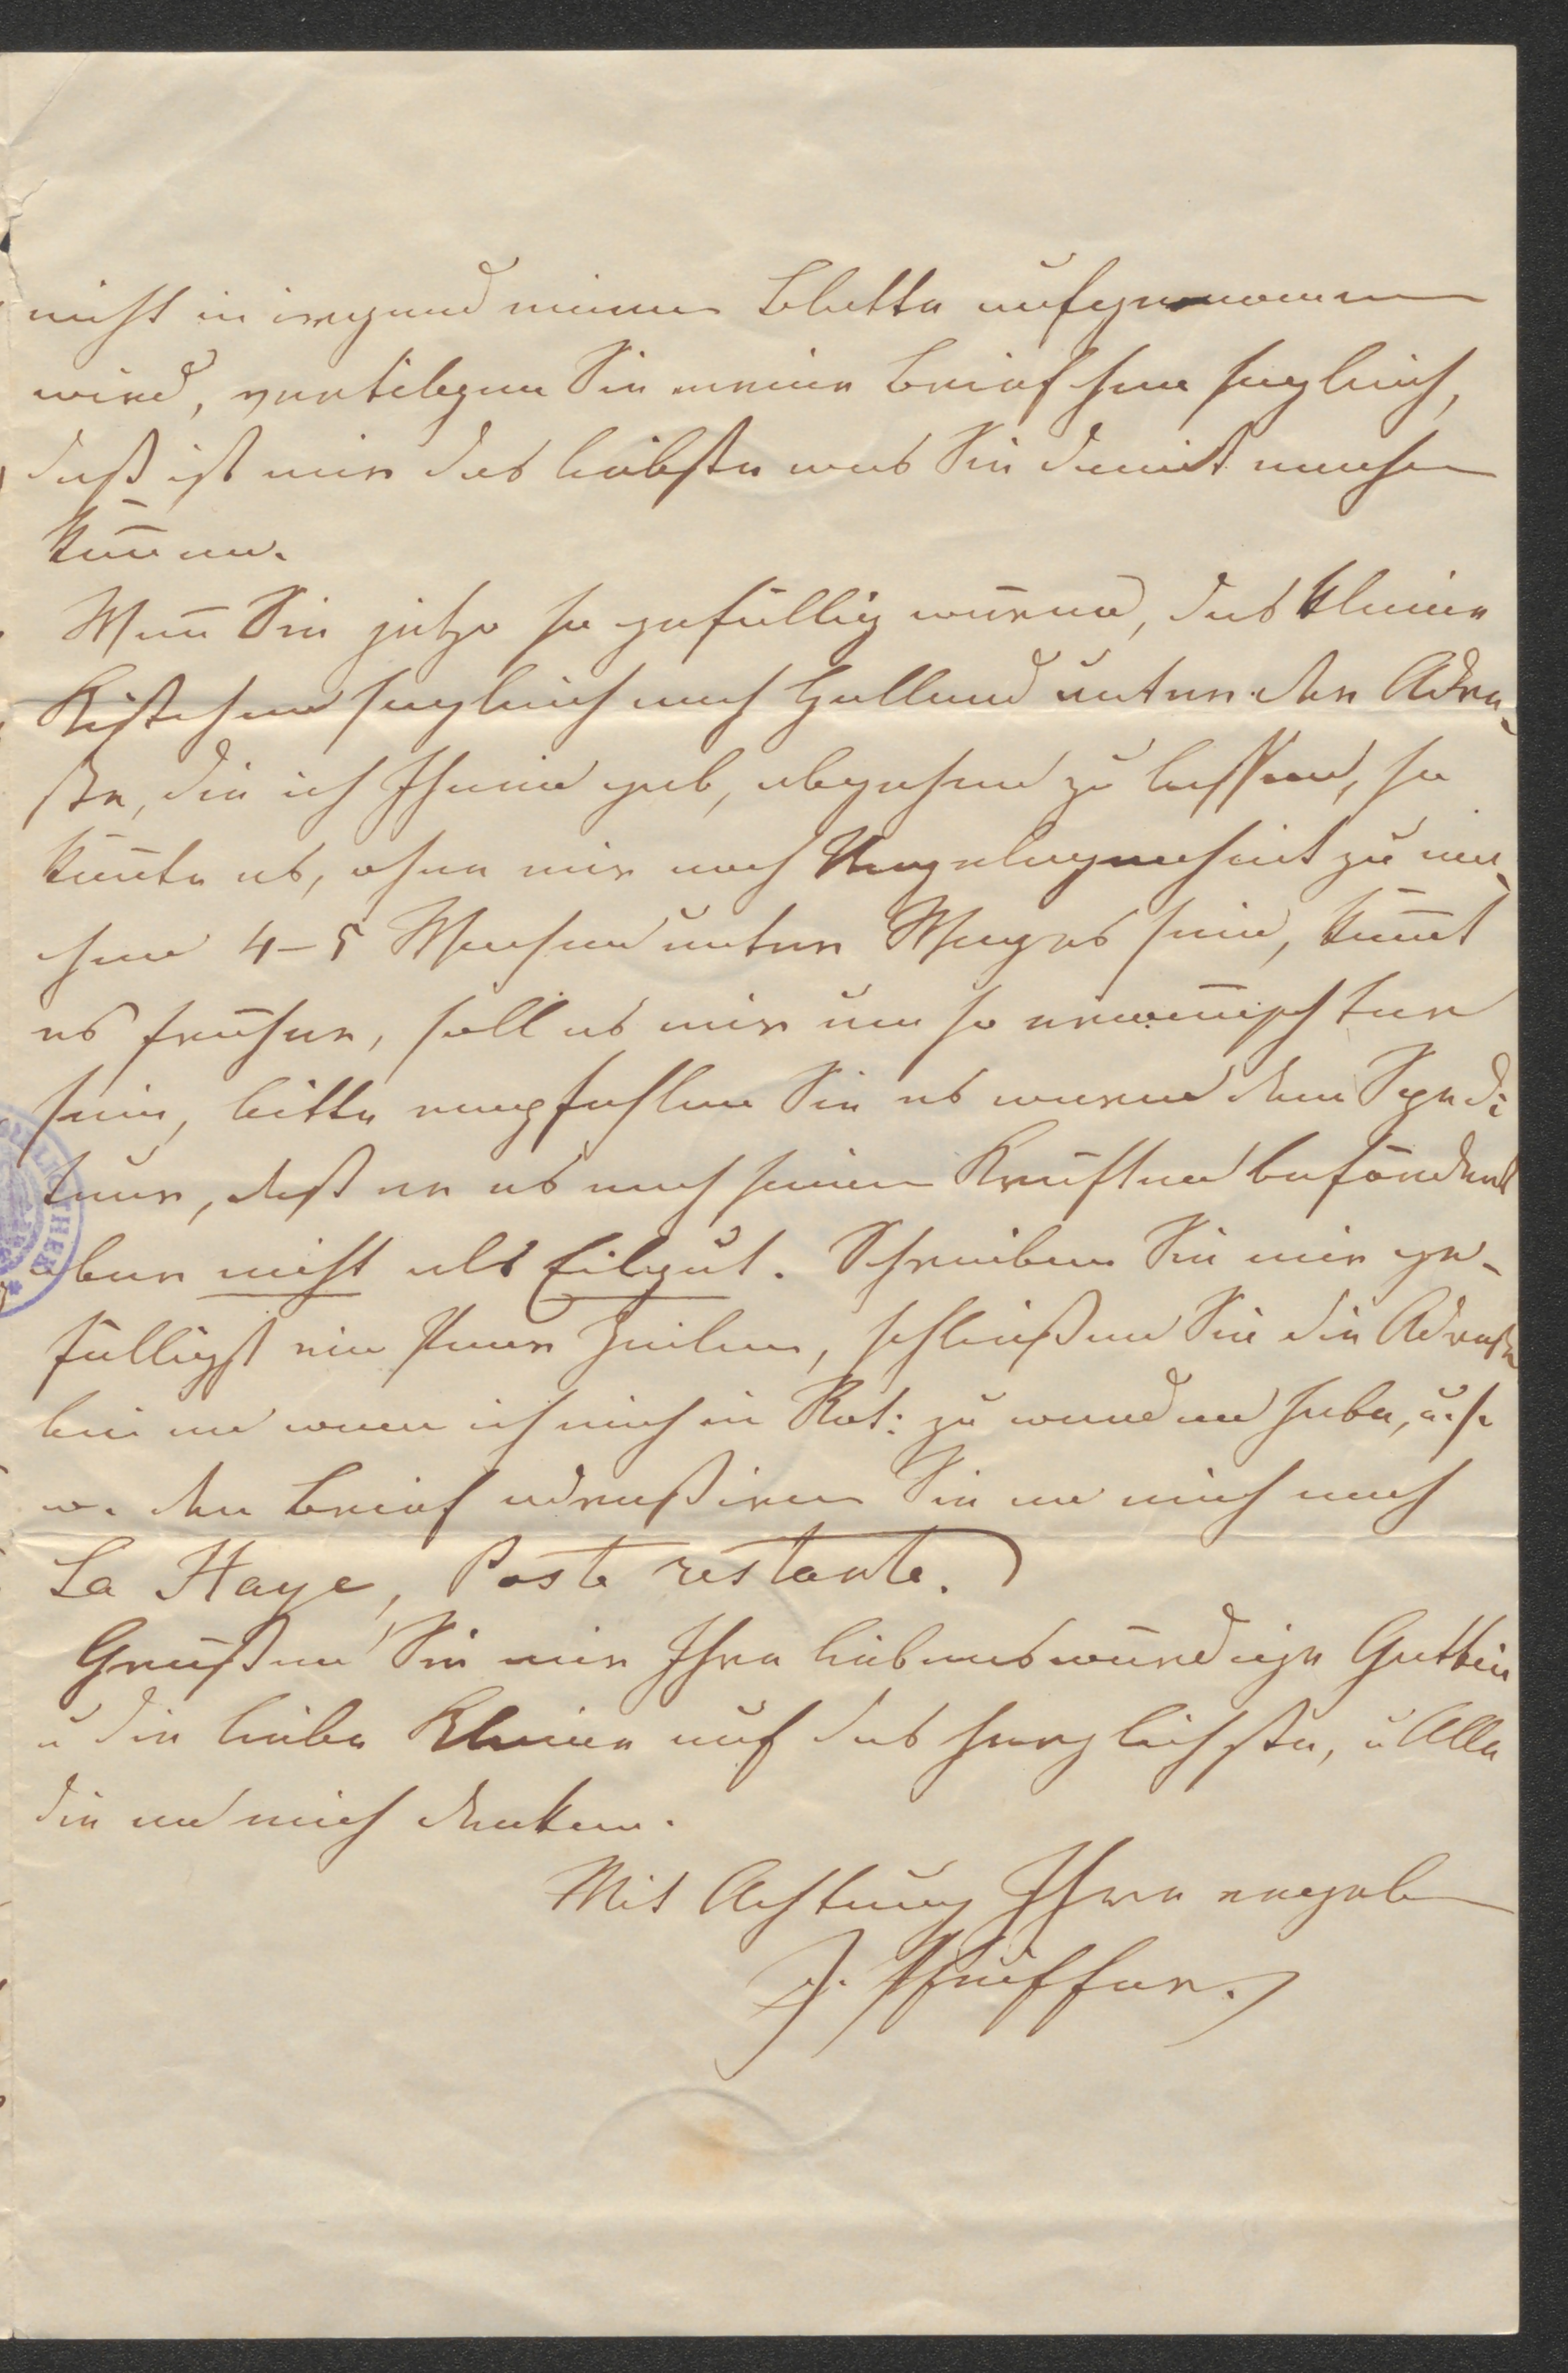 nicht in irgend einem Blatte aufgenommen
wird, vertilgen Sie meine Briefchen sogleich,
daß ist mir das liebste was Sie damit machen
kön̄en.
Wen̄ Sie jetzo so gefällig wären, das kleine
Kistchen sogleich nach Holland unter der Adre-
ße, die ich Ihnen gab, abgehen zu lassen, so
kön̄te es, ohne mir noch Ungelegenheit zu ma-
chen 4-5 Wochen unter Weges sein, kom̄t
es früher, soll es mir um so erwünschter
sein, bitte empfehlen Sie es waren dem Spedi
teur, daß er es nach seinen Kräften befördert
aber nicht als Eilgut. Schreiben Sie mir ge-
fälligst ein Paar Zeilen, schließen Sie die Adreße
bei an wen ich mich in Rot: zu wenden habe, u. s.
w. den Brief adreßiren Sie an mich nach
La Haye, Poste restante.
Grüßen Sie mir Ihre liebenswürdige Gattin
u die liebe Kleine auf das herzlichste, u Alle
die an mich denken.
Mit Achtung Ihre ergeb
I. Pfeiffer.